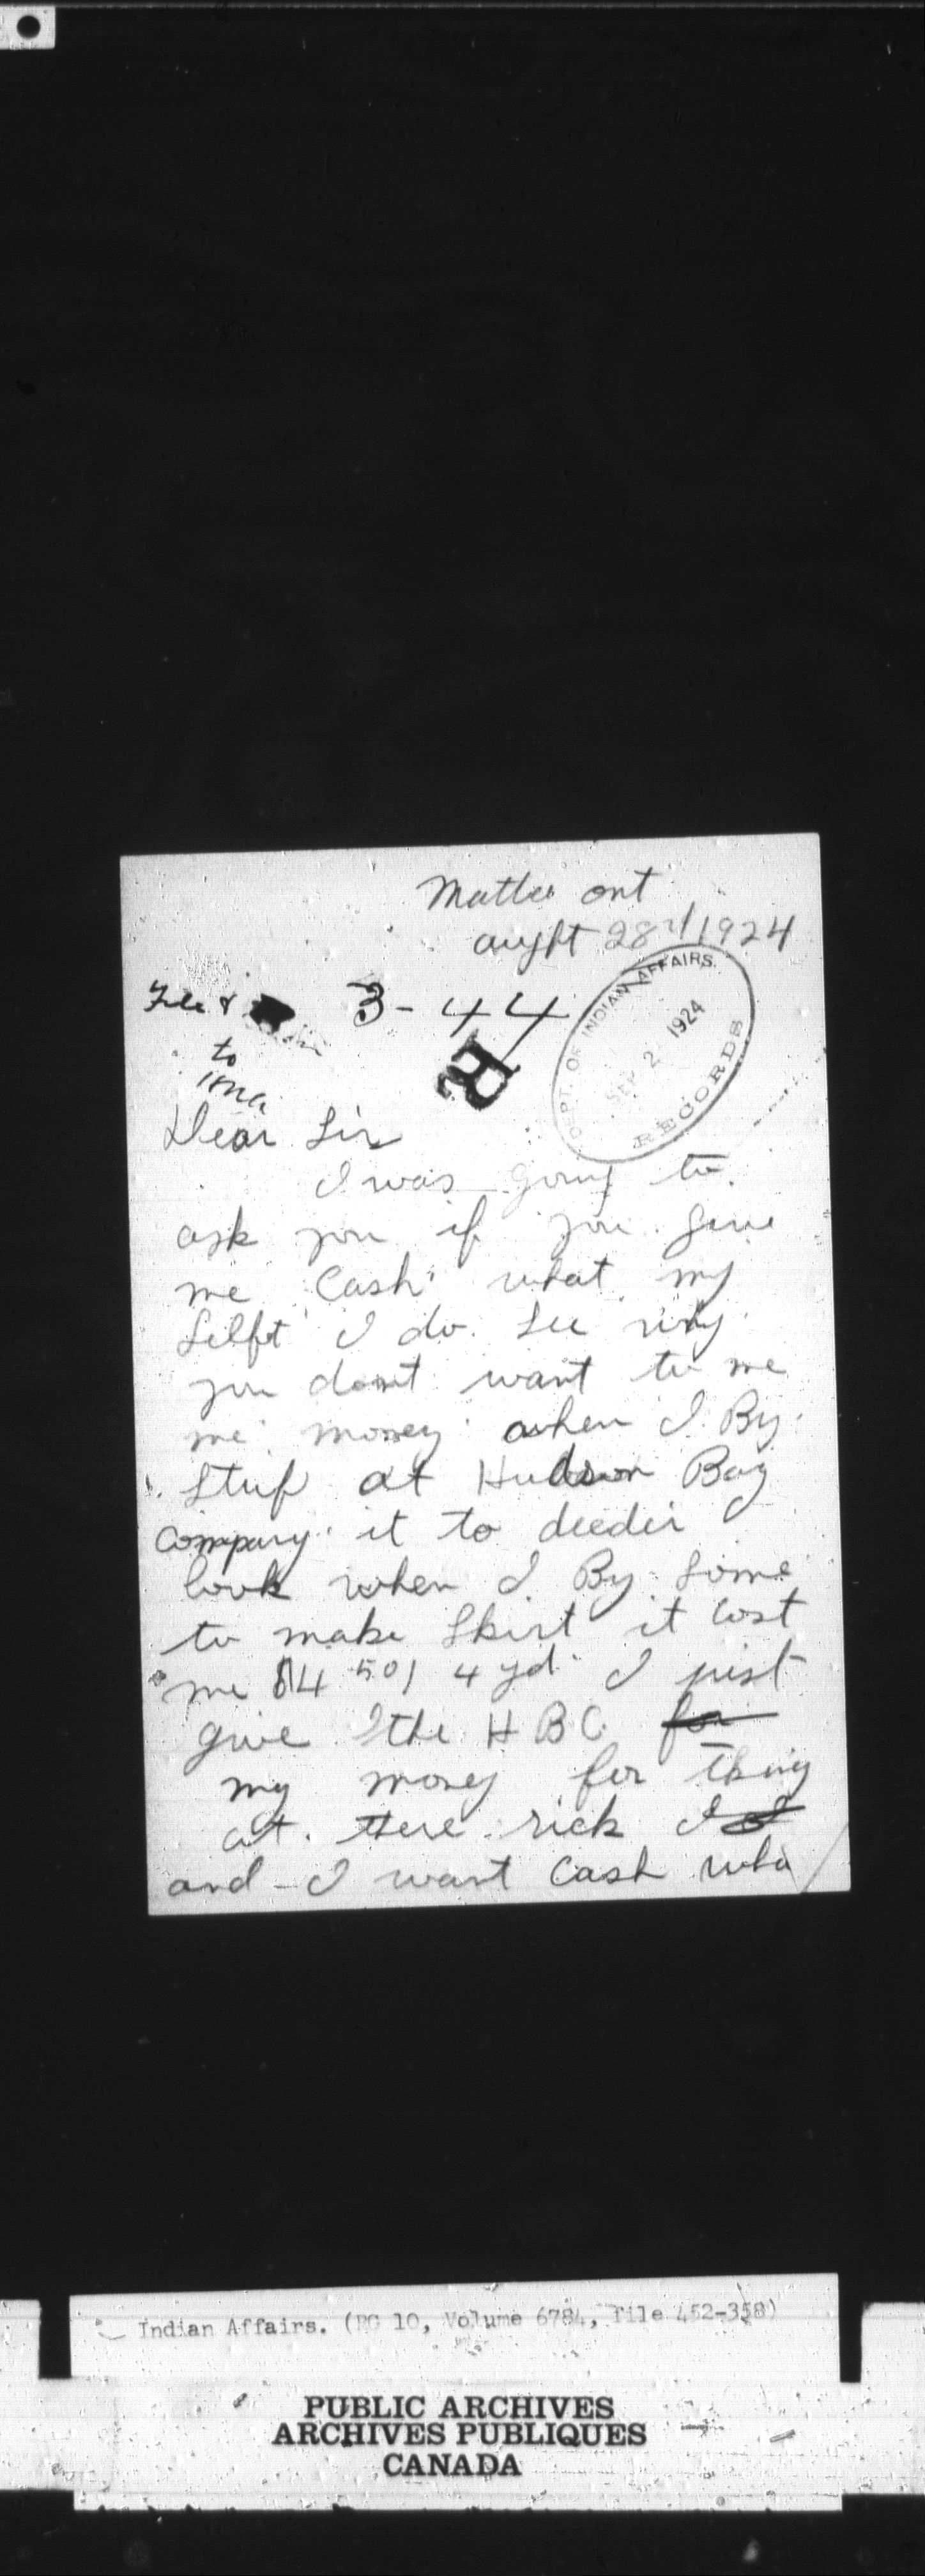 Mattes ont
aught 28rd/1924
File &
3-44
to
DEPT. OF INDIAN AFFAIRS
SEP 2 1924
RECORDS
R
Dear Sir
I was going to
ask you if you give
me Cash what my
Selft I do See why
you don't want to me
me money when I By
Stuf at Hudson Bay
Company it to deeder
look when I By some
to make Skirt it cost
me $14 50/ 4 yd I just
give the H B C for
my money for thing
at there rick I
and - I want Cash wha
Indian Affairs. (RG 10, Volume 6784, file 452-358)
PUBLIC ARCHIVES
ARCHIVES PUBLIQUES
CANADA